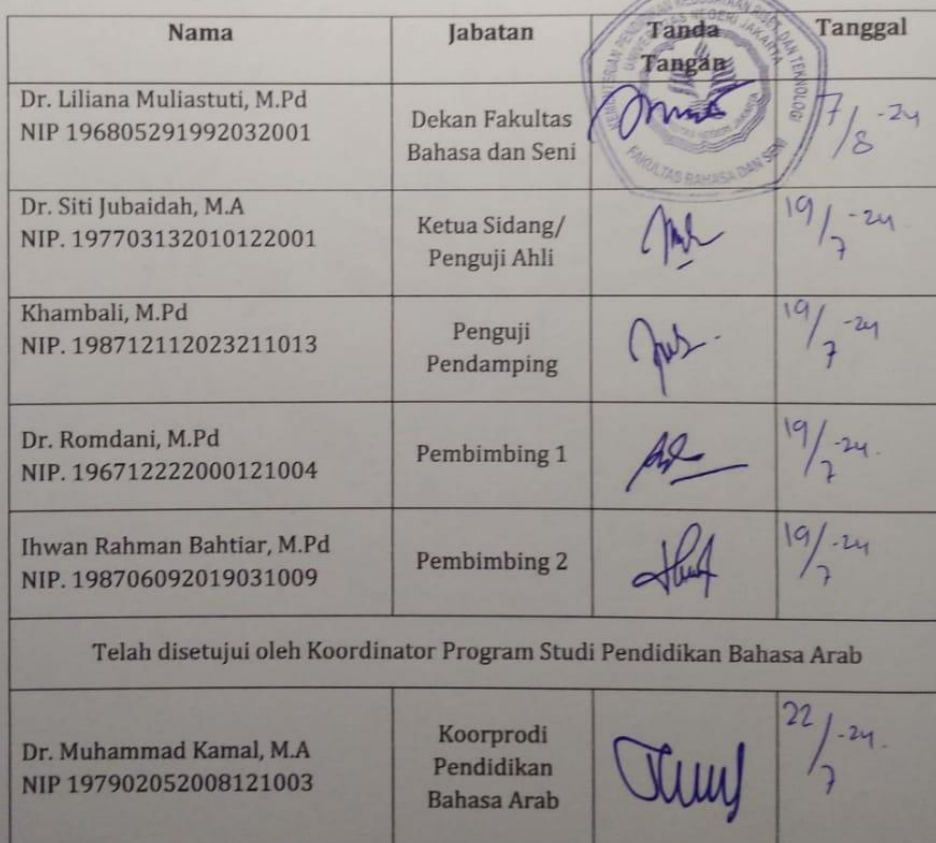 Nama
Jabatan
Tanda
Tangan
Tanggal
Dr. Liliana Muliastuti, M.Pd
NIP 196805291992032001
Dekan Fakultas
Bahasa dan Seni
7/8 -24
UNIVERSITAS NEGERI JAKARTA
FAKULTAS BAHASA DAN SENI
Dr. Siti Jubaidah, M.A
NIP. 197703132010122001
Ketua Sidang/
Penguji Ahli
19/7 -24
Khambali, M.Pd
NIP. 198712112023211013
Penguji
Pendamping
19/7 -24
Dr. Romdani, M.Pd
NIP. 196712222000121004
Pembimbing 1
19/7 -24.
Ihwan Rahman Bahtiar, M.Pd
NIP. 198706092019031009
Pembimbing 2
19/7 -24
Telah disetujui oleh Koordinator Program Studi Pendidikan Bahasa Arab
Dr. Muhammad Kamal, M.A
NIP 197902052008121003
Koorprodi
Pendidikan
Bahasa Arab
22/7 -24.